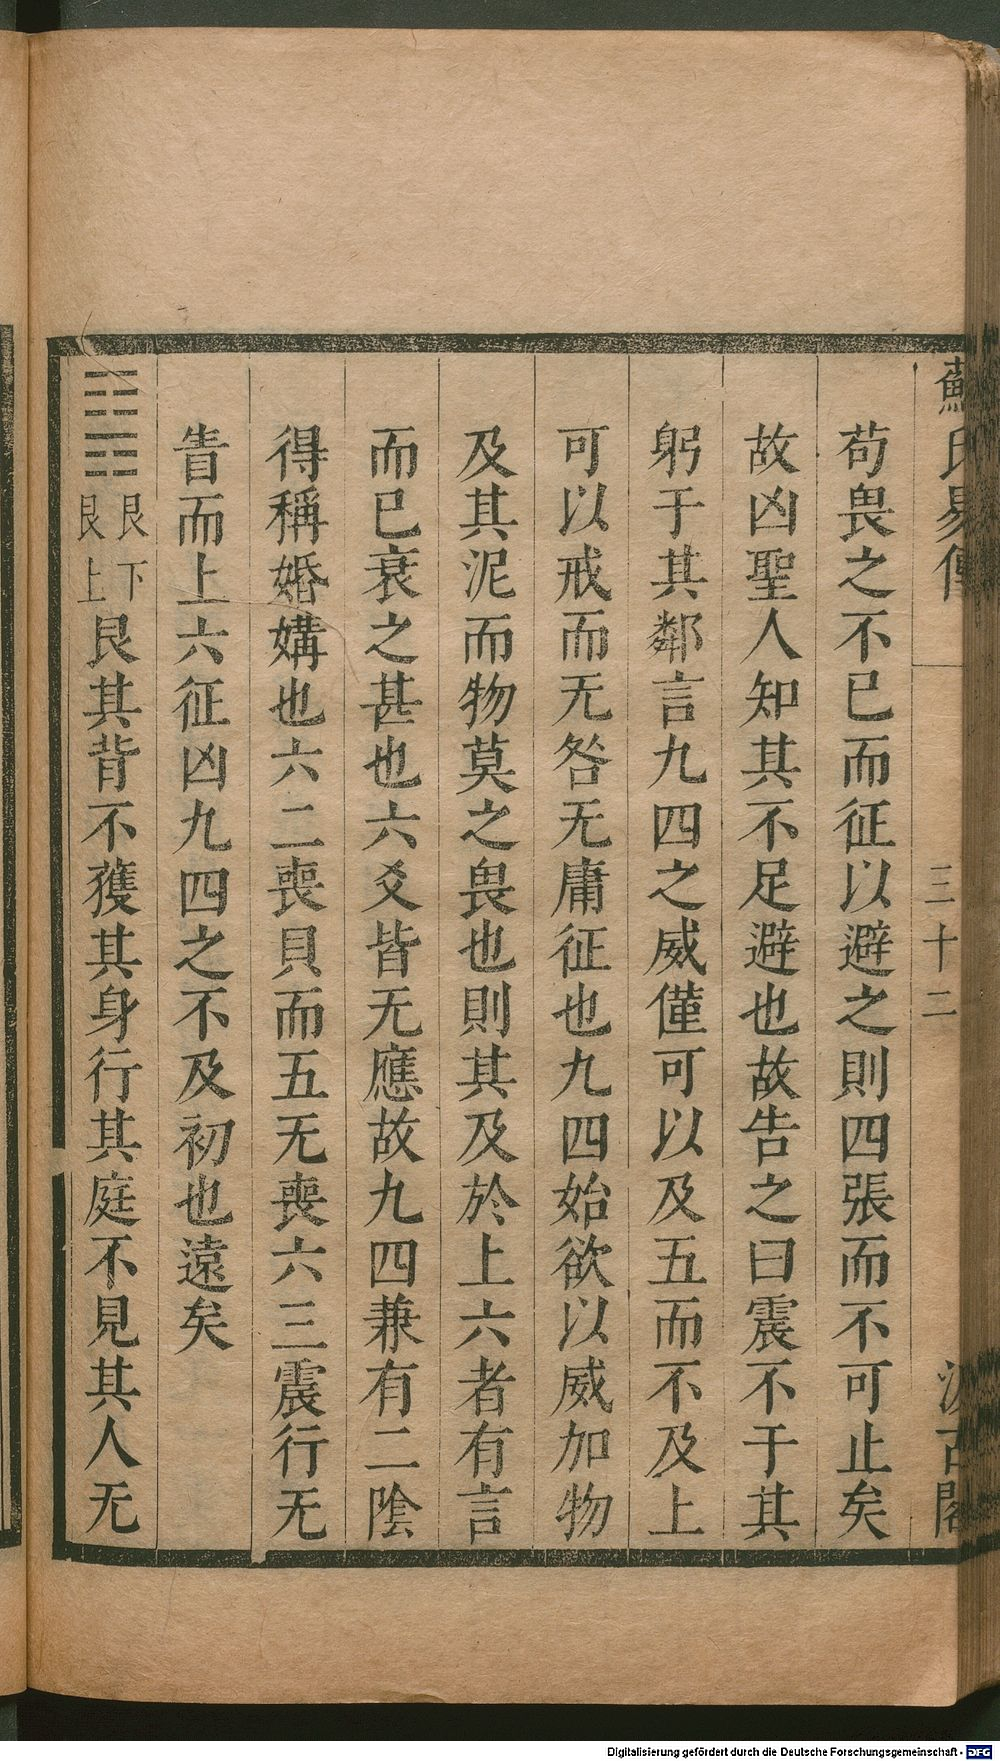 蘇氏易傳
三十二
汲古閣
苟畏之不已而征以避之則四張而不可止矣
故凶聖人知其不足避也故告之曰震不于其
躬于其鄰言九四之威僅可以及五而不及上
可以戒而无咎无庸征也九四始欲以威加物
及其泥而物莫之畏也則其及於上六者有言
而已衰之甚也六爻皆无應故九四兼有二陰
得稱婚媾也六二喪貝而五无喪六三震行无
眚而上六征凶九四之不及初也遠矣
䷳艮下艮上艮其背不獲其身行其庭不見其人无
Digitalisierung gefördert durch die Deutsche Forschungsgemeinschaft - DFG